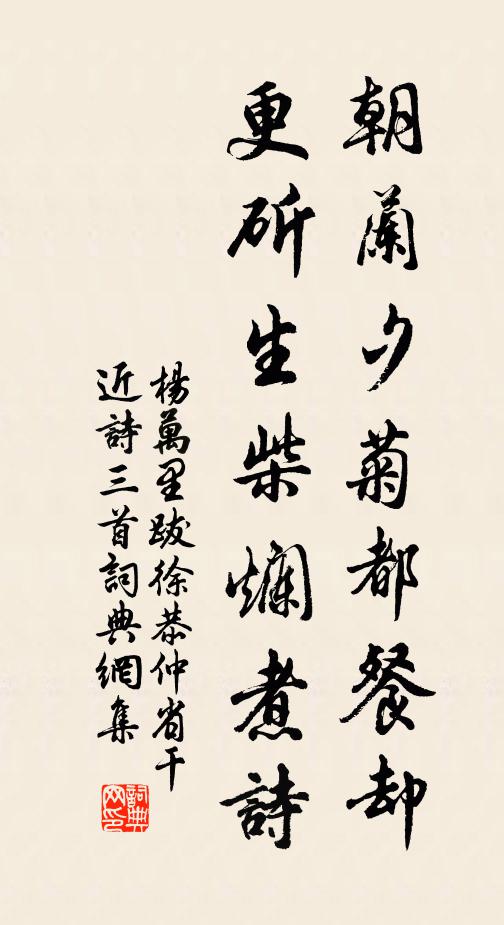 朝蘭夕菊都餐却
更斫生柴爛煮詩
楊萬里跋徐恭仲省干
近詩三首詞典網集
詞典网印